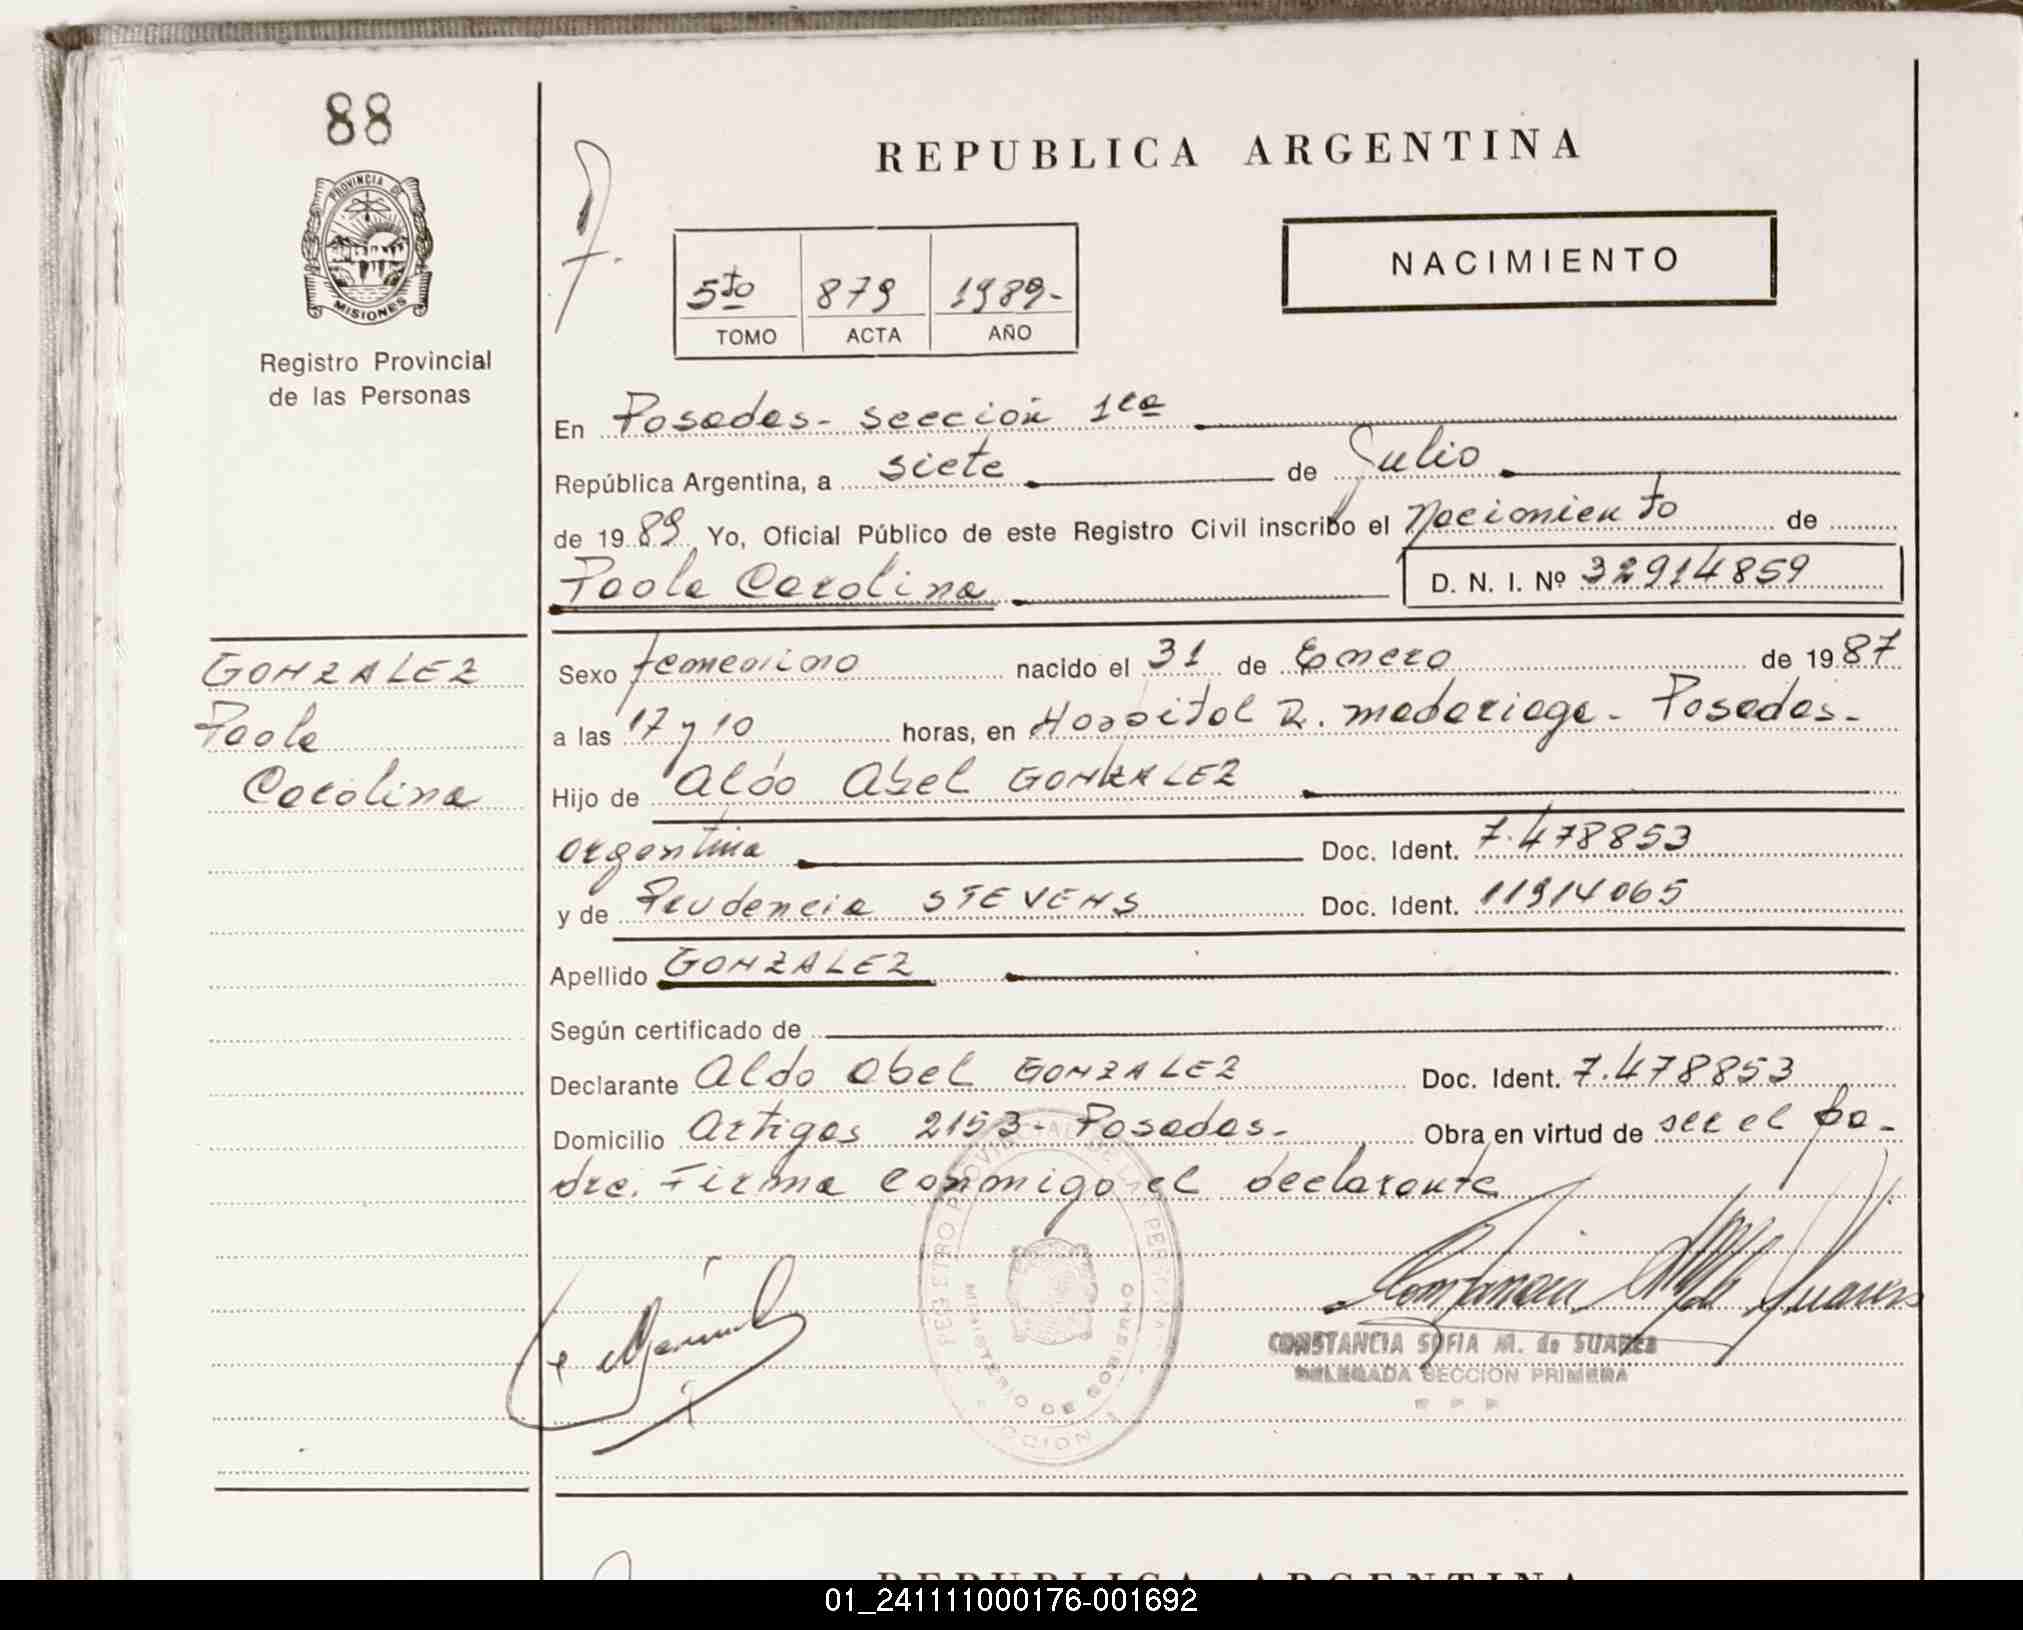 88
PROVINCIA DE
MISIONES
Registro Provincial
de las Personas
REPUBLICA ARGENTINA
NACIMIENTO
5to 879 1989-
TOMO ACTA AÑO
En Posadas - sección 1ra
República Argentina, a siete de Julio
de 1989 Yo, Oficial Público de este Registro Civil inscribo el Nacimiento de
Paola Carolina D. N. I. Nº 32914859
GONZALEZ
Paola
Carolina
Sexo femenino nacido el 31 de Enero de 1987
a las 17 y 10 horas, en Hospital R. madariaga - Posadas -
Hijo de Aldo Abel GONZALEZ
argentina Doc. Ident. 7.478853
y de Prudencia STEVENS Doc. Ident. 11914065
Apellido GONZALEZ
Según certificado de
Declarante Aldo Abel GONZALEZ Doc. Ident. 7.478853
Domicilio Artigas 2153 - Posadas - Obra en virtud de ser el pa-
dre. Firma conmigo el declarante
REGISTRO PROVINCIAL DE LAS PERSONAS
MINISTERIO DE GOBIERNO
CONSTANCIA SOFIA M. de SUAREZ
DELEGADA SECCION PRIMERA
REPUBLICA ARGENTINA
01_241111000176-001692